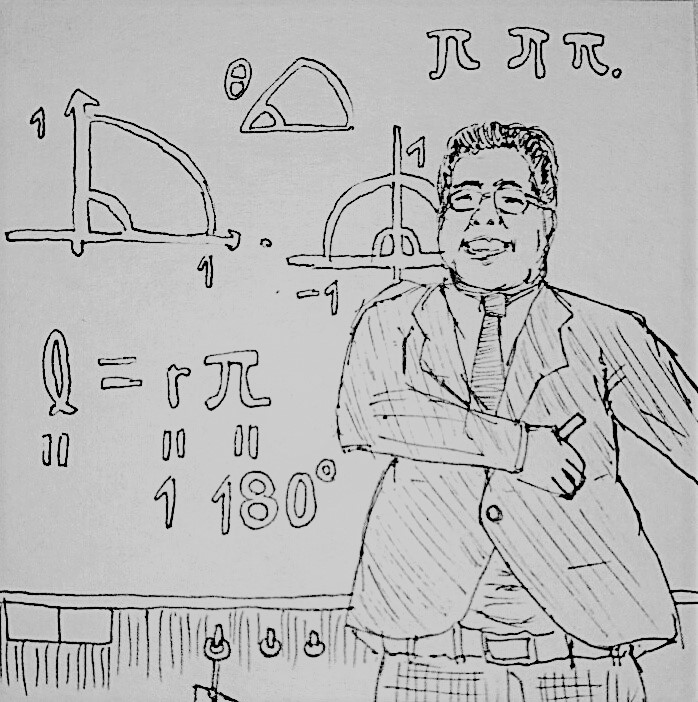 π π π.
θ
1
1
1
-1
l = r π
= = =
1 180°